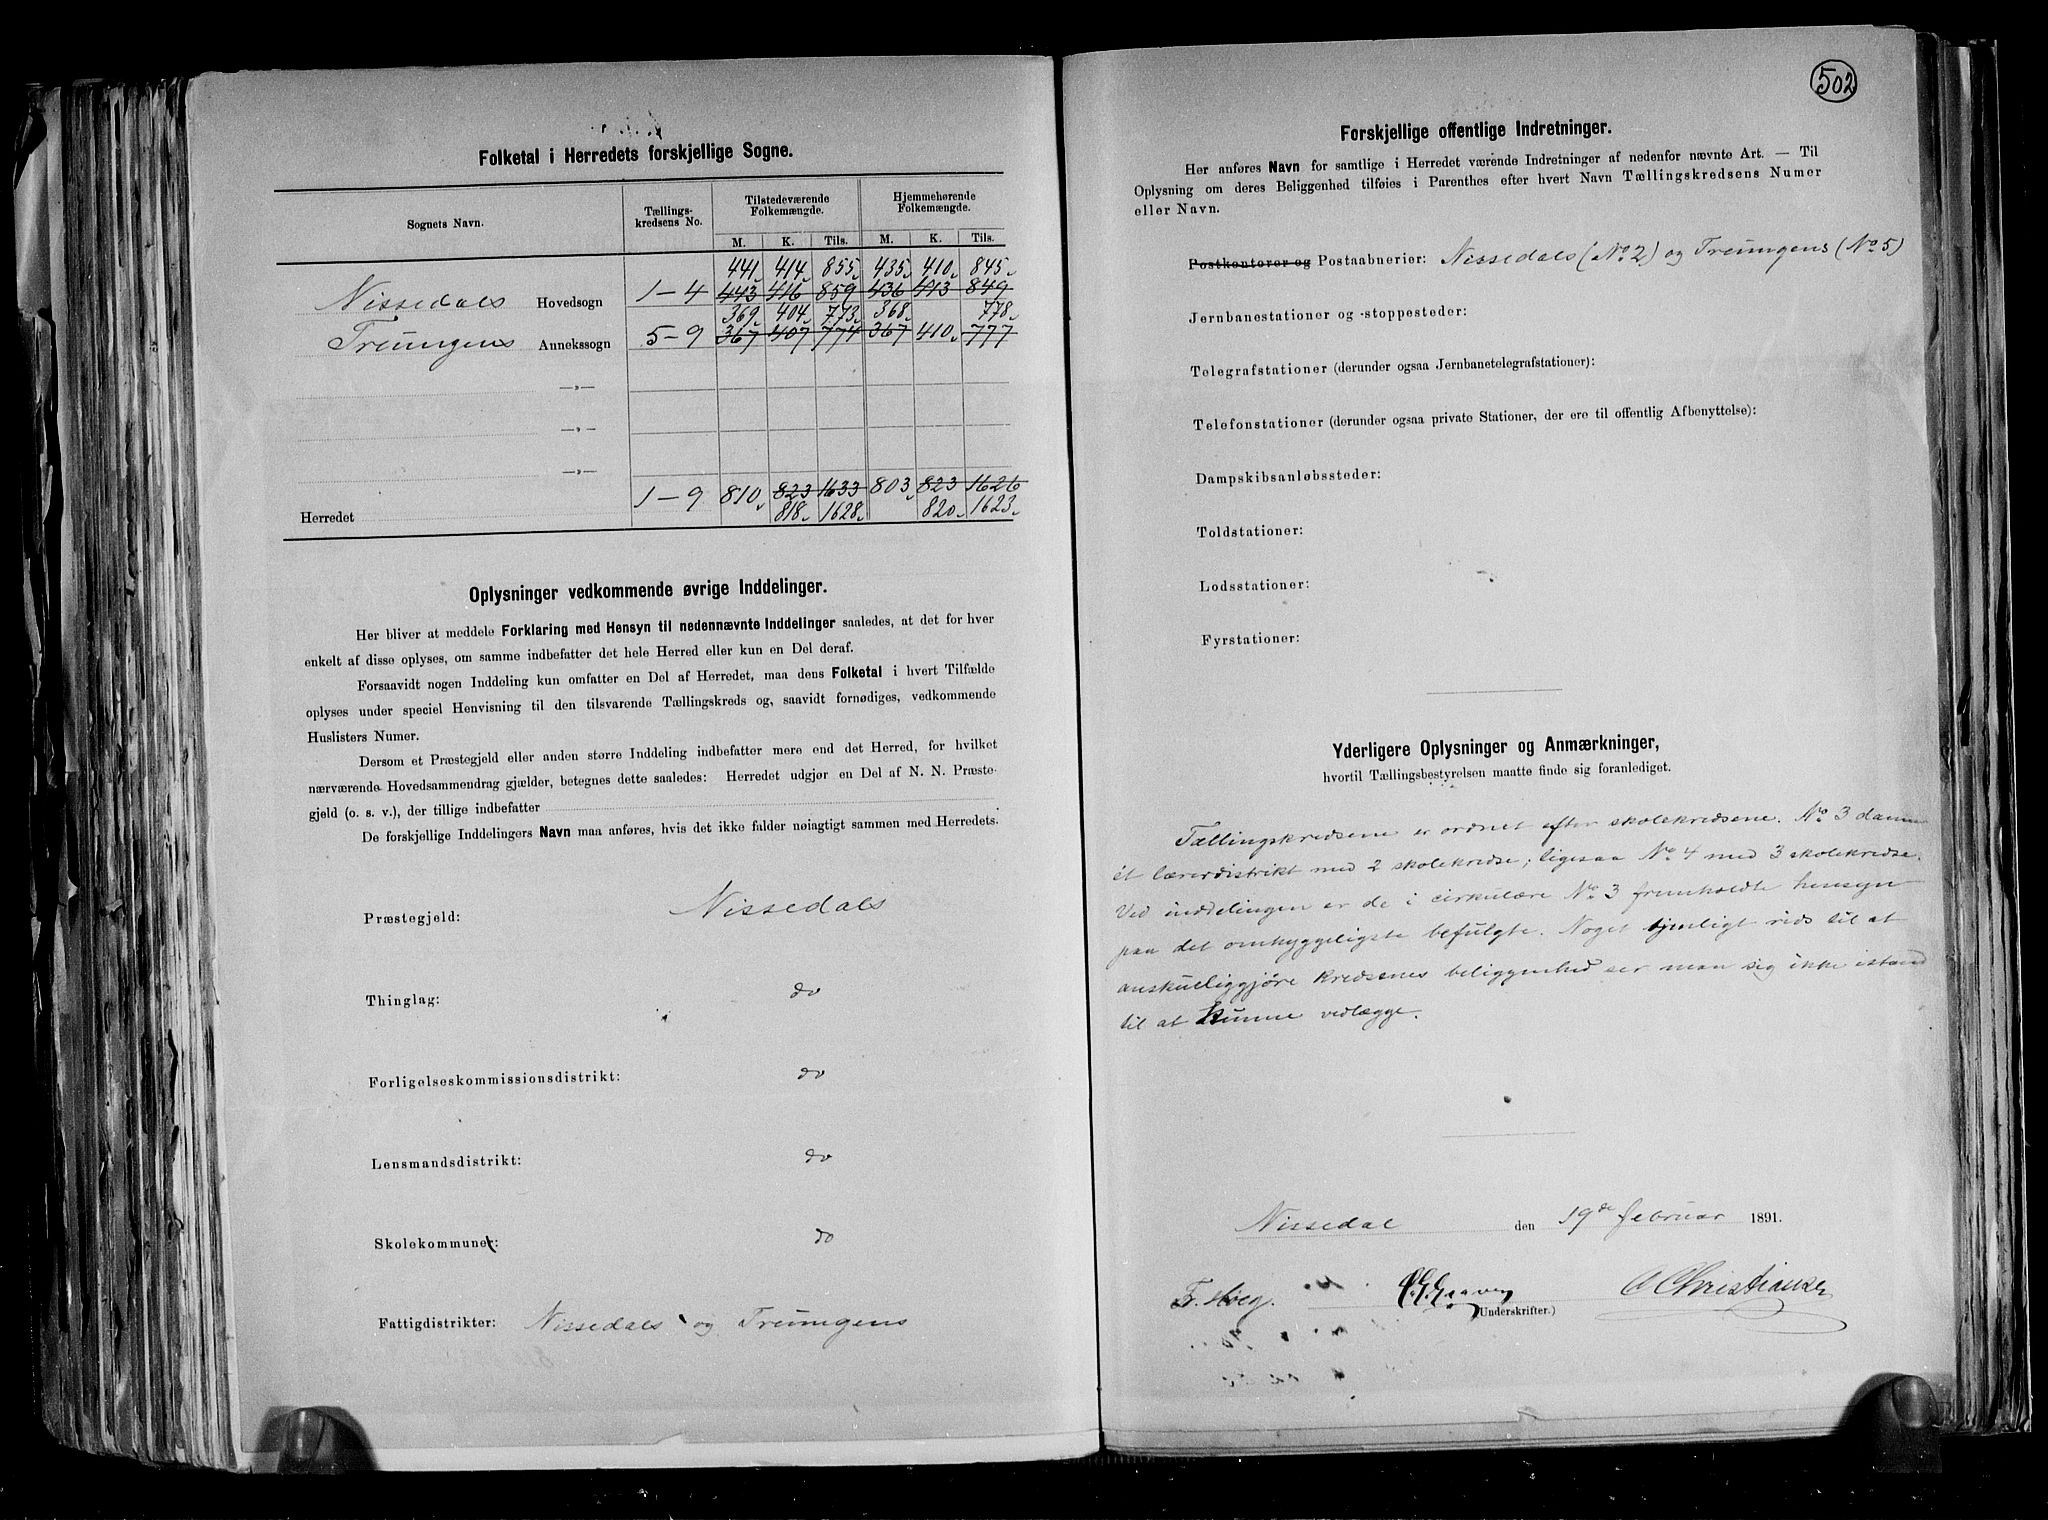 Folketal i Herredets forskjellige Sogne.
Sognets Navn.
Tællings-
kredsens No.
Tilstedeværende
Folkemængde.
Hjemmehørende
Folkemængde.
M. K. Tils. M. K. Tils.
441 414 855 435 410 845
Nissedals Hovedsogn 1-4 443 416 859 436 413 849
369 404 773 368 778
Treungens Annekssogn 5-9 367 407 774 367 410 777
—„—
—„—
—„—
Herredet 1-9 810 823 1633 803 823 1626
818 1628 820 1623
Oplysninger vedkommende øvrige Inddelinger.
Her bliver at meddele Forklaring med Hensyn til nedennævnte Inddelinger saaledes, at det for hver
enkelt af disse oplyses, om samme indbefatter det hele Herred eller kun en Del deraf.
Forsaavidt nogen Inddeling kun omfatter en Del af Herredet, maa dens Folketal i hvert Tilfælde
oplyses under speciel Henvisning til den tilsvarende Tællingskreds og, saavidt fornødiges, vedkommende
Huslisters Numer.
Dersom et Præstegjeld eller anden større Inddeling indbefatter mere end det Herred, for hvilket
nærværende Hovedsammendrag gjælder, betegnes dette saaledes: Herredet udgjør en Del af N. N. Præste-
gjeld (o. s. v.), der tillige indbefatter
De forskjellige Inddelingers Navn maa anføres, hvis det ikke falder nøiagtigt sammen med Herredets.
Præstegjeld: Nissedals
Thinglag: do
Forligelseskommissionsdistrikt: do
Lensmandsdistrikt: do
Skolekommune: do
Fattigdistrikter: Nissedals og Treungens
502
Forskjellige offentlige Indretninger.
Her anføres Navn for samtlige i Herredet værende Indretninger af nedenfor nævnte Art. — Til
Oplysning om deres Beliggenhed tilføies i Parenthes efter hvert Navn Tællingskredsens Numer
eller Navn.
Postkontorer og Postaabnerier: Nissedals (No 2) og Treungens (No 5)
Jernbanestationer og -stoppesteder:
Telegrafstationer (derunder ogsaa Jernbanetelegrafstationer):
Telefonstationer (derunder ogsaa private Stationer, der ere til offentlig Afbenyttelse):
Dampskibsanløbssteder:
Toldstationer:
Lodsstationer:
Fyrstationer:
Yderligere Oplysninger og Anmærkninger,
hvortil Tællingsbestyrelsen maatte finde sig foranlediget.
Tællingskredsene er ordnet efter skolekredsene. No 3 danner
ét lærerdistrikt med 2 skolekredse; ligesaa No 4 med 3 skolekredse.
Ved inddelingen er de i cirkulære No 3 fremholdte hensyn
paa det omhyggeligste befulgte. Noget tjenligt rids til at
anskueliggjøre kredsenes beliggenhed ser man sig ikke istand
til at kunne vedlægge.
Nissedal den 19de februar 1891.
Fr. Høeg. Graaven C Christiansen
Underskrifter.)